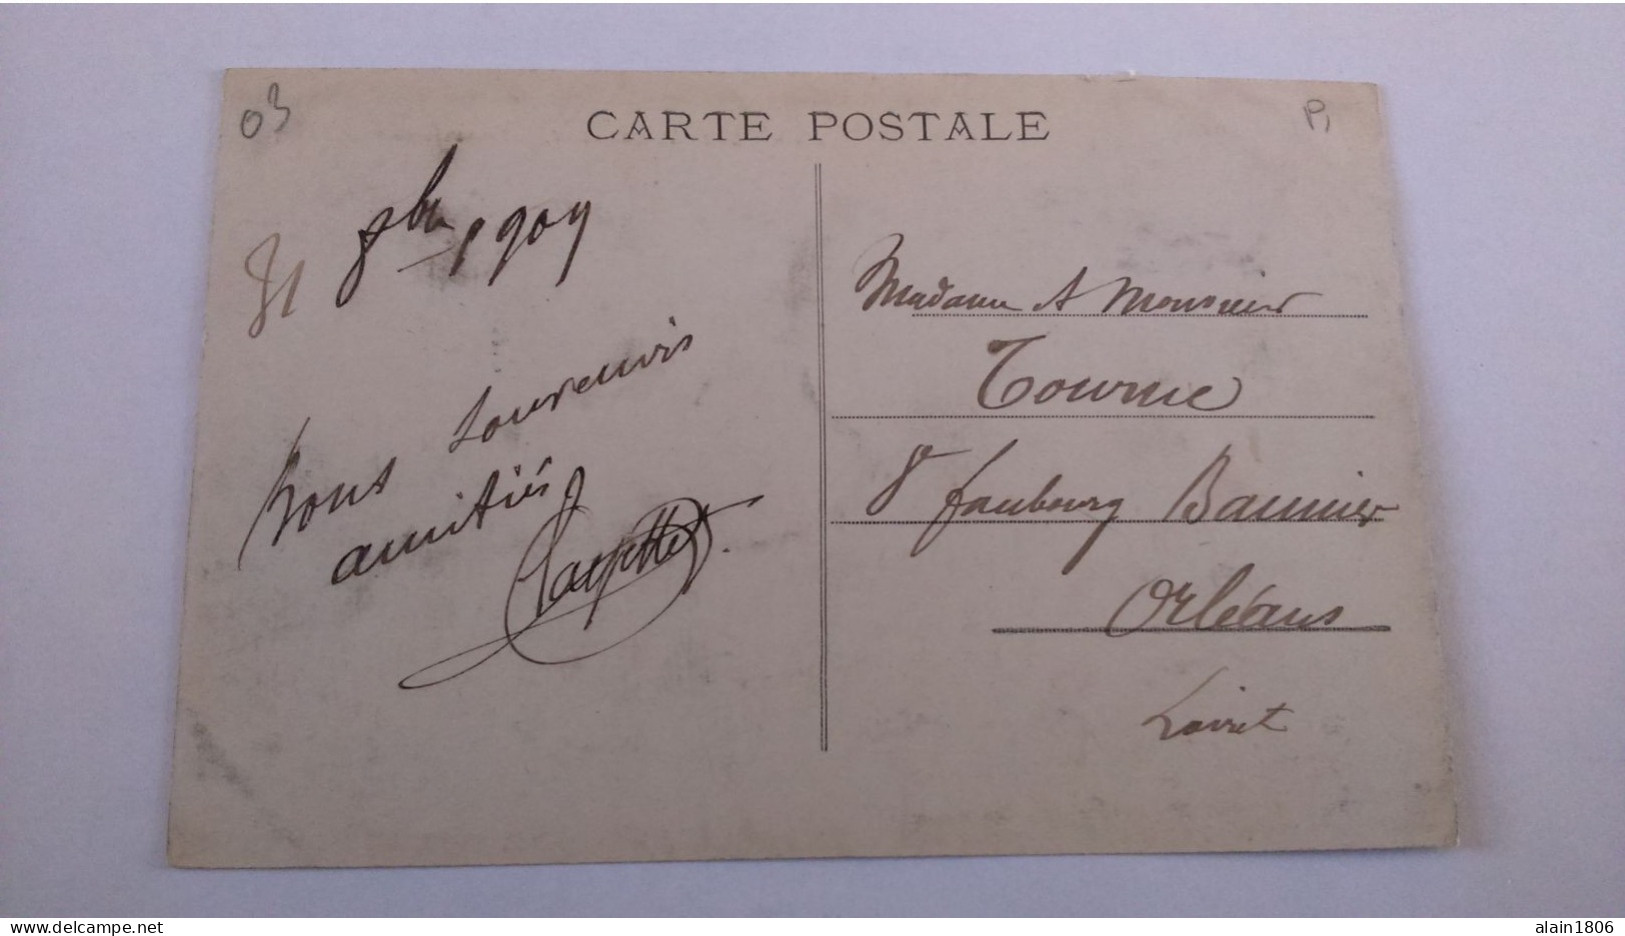 03
P,
CARTE POSTALE
31 8bre 1909
Bons souvenirs
amitiés
Madame & Monsieur
Tourne
8 faubourg Bannier
Orléans
Loiret
delcampe.net
alain1806